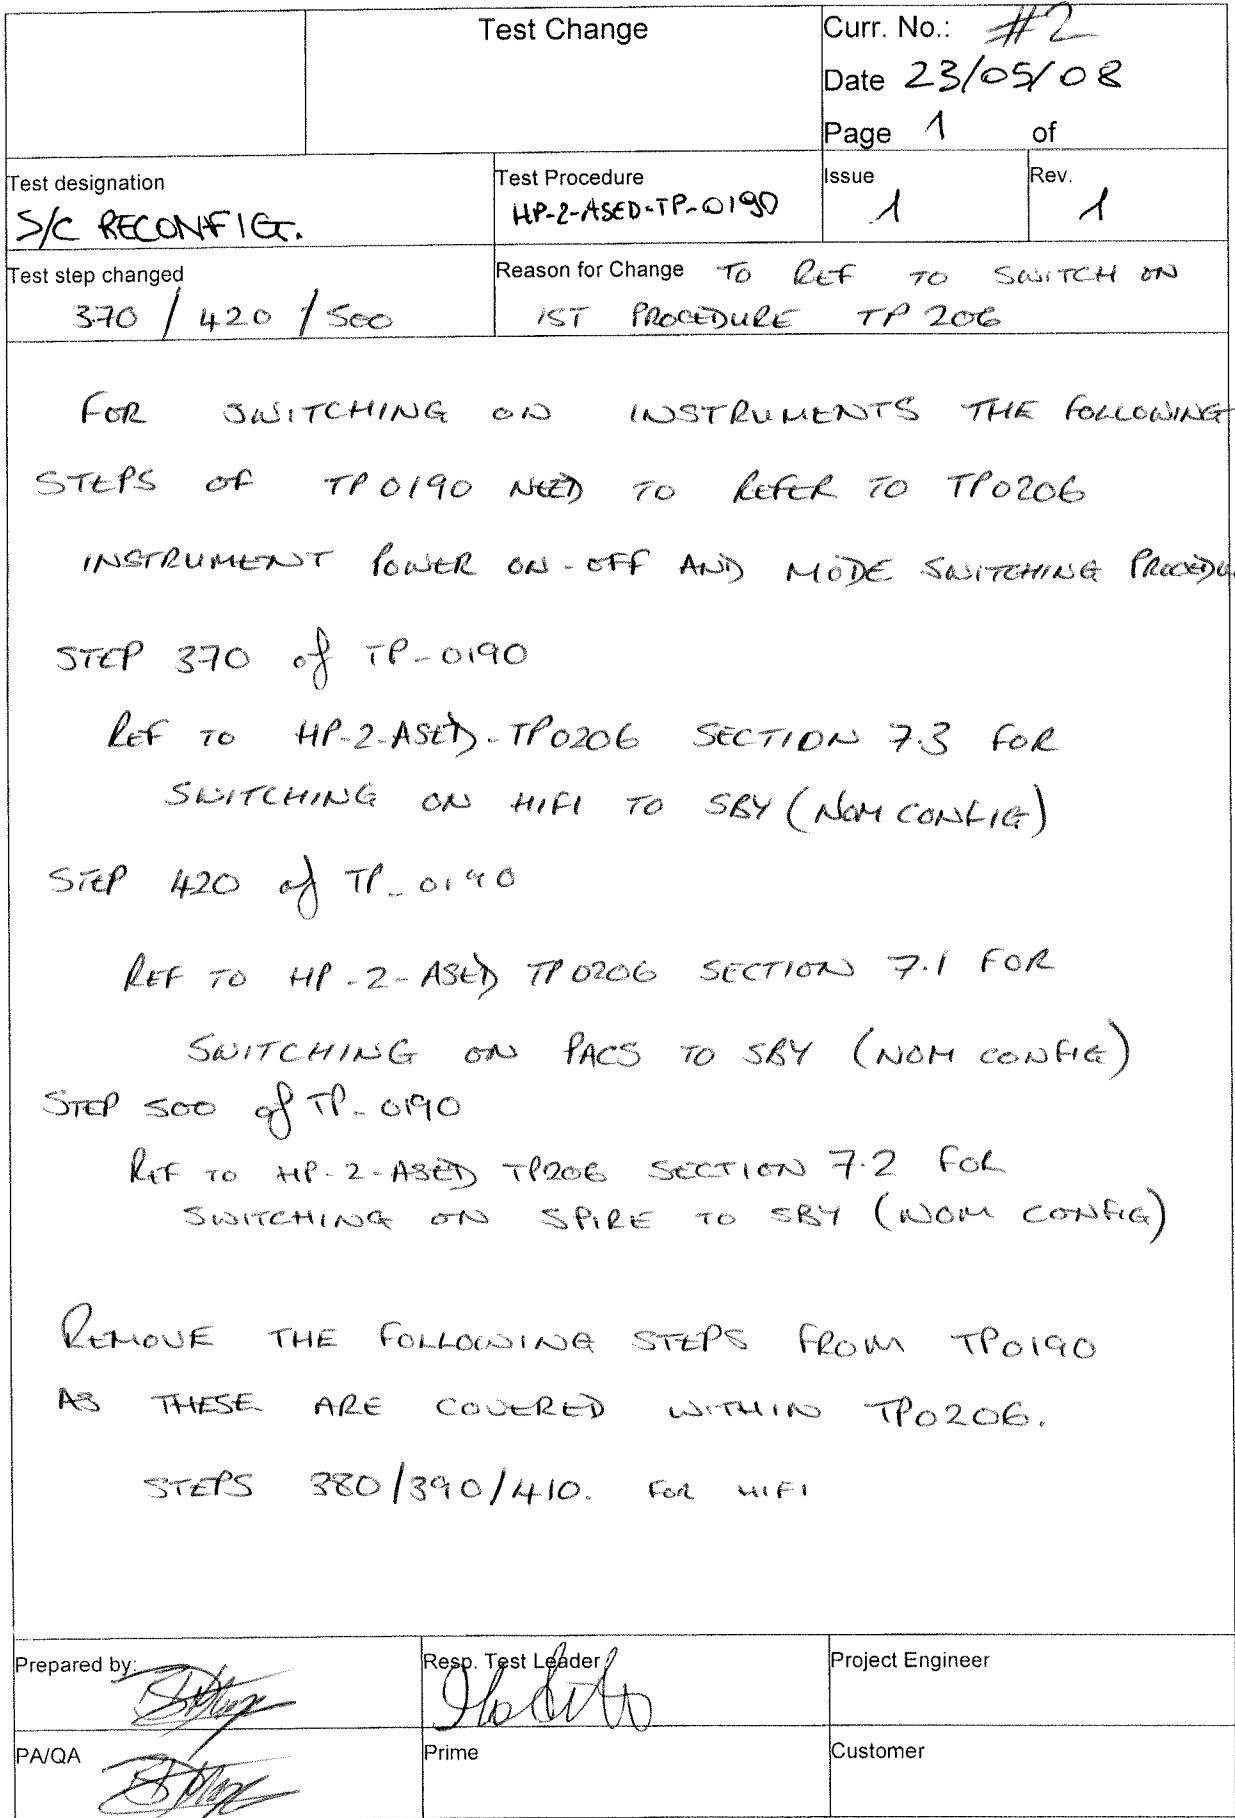 Test Change
Curr. No.: #2
Date 23/05/08
Page 1 of
Test designation
S/C RECONFIG.
Test Procedure
HP-2-ASED-TP-0190
Issue
1
Rev.
1
Test step changed
370 / 420 / 500
Reason for Change TO REF TO SWITCH ON
IST PROCEDURE TP 206
FOR SWITCHING ON INSTRUMENTS THE FOLLOWING
STEPS OF TP0190 NEED TO REFER TO TP0206
INSTRUMENT POWER ON-OFF AND MODE SWITCHING PROCEDU
STEP 370 of TP-0190
REF TO HP-2-ASED-TP0206 SECTION 7.3 FOR
SWITCHING ON HIFI TO SBY (NOM CONFIG)
STEP 420 of TP-0190
REF TO HP-2-ASED TP0206 SECTION 7.1 FOR
SWITCHING ON PACS TO SBY (NOM CONFIG)
STEP 500 of TP-0190
REF TO HP-2-ASED TP206 SECTION 7.2 FOR
SWITCHING ON SPIRE TO SBY (NOM CONFIG)
REMOVE THE FOLLOWING STEPS FROM TP0190
AS THESE ARE COVERED WITHIN TP0206.
STEPS 380/390/410. FOR HIFI
Prepared by:
Resp. Test Leader
Project Engineer
PA/QA
Prime
Customer